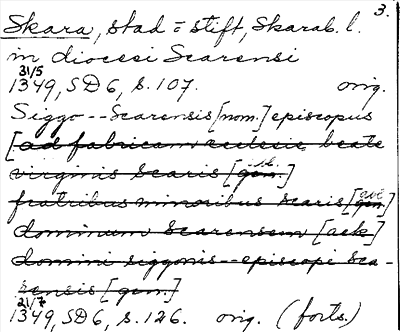 3.
Skara, stad = stift, Skarab. l.
in diocesi Scarensi
31/5
1349, SD 6, s. 107. orig.
Siggo -- Scarensis [nom.] episcopus
[ad fabricam ecclesie beate
virginis Scaris [gen.]
fratribus minoribus Scaris [gen.]
dominum Scarensem [ack]
domini siggonis -- episcopi Sca-
rensis [gen.]
21/7
1349, SD 6, s. 126. orig. (forts.)